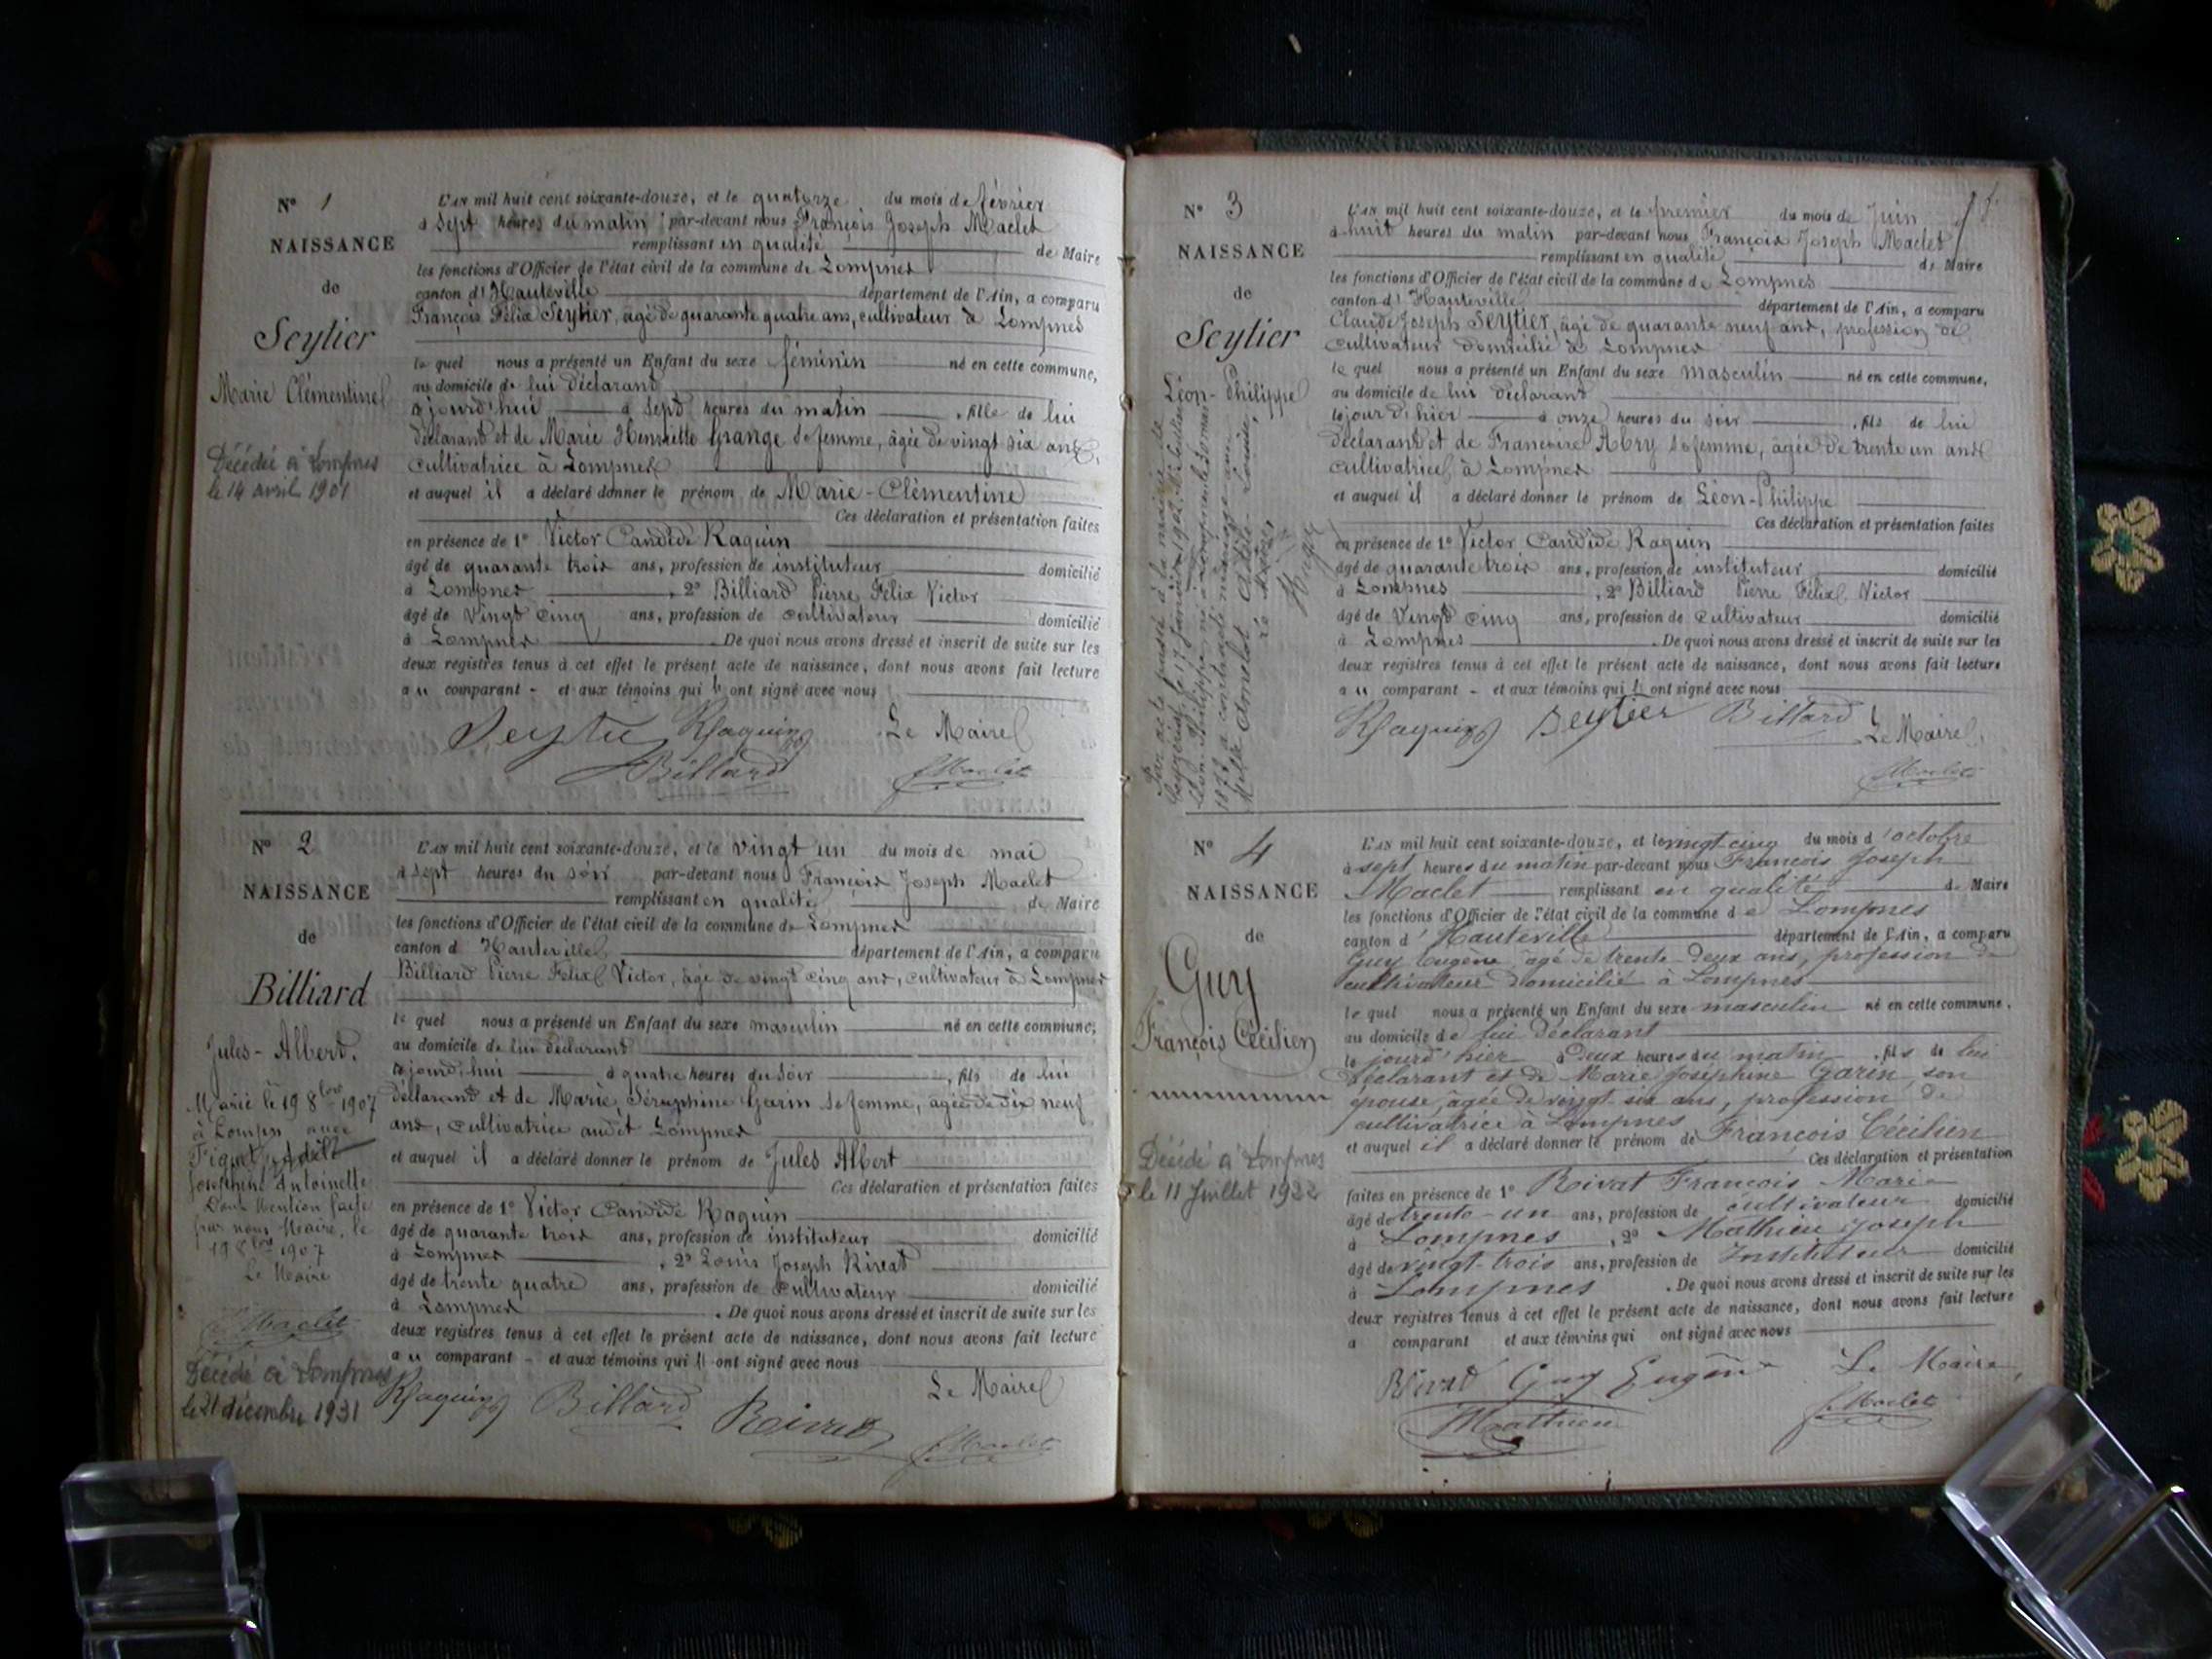 N° 1
NAISSANCE
de
Seytier
Marie Clémentine
Décédée à Lompnes
le 14 avril 1901
L'AN mil huit cent soixante-douze, et le quatorze du mois de février
à sept heures du matin par-devant nous François Joseph Maclet
remplissant en qualité de Maire
les fonctions d'Officier de l'état civil de la commune de Lompnes
canton d'Hauteville département de l'Ain, a comparu
François Félix Seytier, âgé de quarante quatre ans, cultivateur à Lompnes
le quel nous a présenté un Enfant du sexe féminin né en cette commune,
au domicile de lui déclarant
aujourd'hui à sept heures du matin , fille de lui
déclarant et de Marie Henriette Grange sa femme, âgée de vingt six ans,
cultivatrice à Lompnes
et auquel il a déclaré donner le prénom de Marie-Clémentine
Ces déclaration et présentation faites
en présence de 1° Victor Candide Raquin
âgé de quarante trois ans, profession de instituteur domicilié
à Lompnes , 2° Billiard Pierre Félix Victor
âgé de vingt cinq ans, profession de cultivateur domicilié
à Lompnes . De quoi nous avons dressé et inscrit de suite sur les
deux registres tenus à cet effet le présent acte de naissance, dont nous avons fait lecture
au comparant - et aux témoins qui ont signé avec nous
Seytier Raquin Le Maire
Billard Maclet
N° 2
NAISSANCE
de
Billiard
Jules-Albert.
Marié le 19 8bre 1907
à Lompn avec
Joséphine Antoinette
Dont Mention faite
par nous Maire, le
19 8bre 1907
Le Maire
Maclet
Décédé à Lompnes
le 21 décembre 1931
L'AN mil huit cent soixante-douze, et le vingt un du mois de mai
à sept heures du soir par-devant nous François Joseph Maclet
remplissant en qualité de Maire
les fonctions d'Officier de l'état civil de la commune de Lompnes
canton d Hauteville département de l'Ain, a comparu
Billiard Pierre Félix Victor, âgé de vingt cinq ans, cultivateur à Lompnes
le quel nous a présenté un Enfant du sexe masculin né en cette commune,
au domicile de lui déclarant
aujourd'hui à quatre heures du soir , fils de lui
déclarant et de Marie Séraphine Garin sa femme, âgée de dix neuf
ans, cultivatrice audit Lompnes
et auquel il a déclaré donner le prénom de Jules Albert
Ces déclaration et présentation faites
en présence de 1° Victor Candide Raquin
âgé de quarante trois ans, profession de instituteur domicilié
à Lompnes , 2° Louis Joseph Rivat
âgé de trente quatre ans, profession de cultivateur domicilié
à Lompnes . De quoi nous avons dressé et inscrit de suite sur les
deux registres tenus à cet effet le présent acte de naissance, dont nous avons fait lecture
au comparant - et aux témoins qui ont signé avec nous
Le Maire
Raquin Billard Rivat Maclet
N° 3
NAISSANCE
de
Seytier
Léon-Philippe
L'AN mil huit cent soixante-douze, et le premier du mois de Juin
à huit heures du matin par-devant nous François Joseph Maclet
remplissant en qualité de Maire
les fonctions d'Officier de l'état civil de la commune de Lompnes
canton d'Hauteville département de l'Ain, a comparu
Claude Joseph Seytier, âgé de quarante neuf ans, profession de
cultivateur domicilié à Lompnes
le quel nous a présenté un Enfant du sexe masculin né en cette commune,
au domicile de lui déclarant
le jour d'hier à onze heures du soir , fils de lui
déclarant et de Françoise Abry sa femme, âgée de trente un ans
cultivatrice à Lompnes
et auquel il a déclaré donner le prénom de Léon-Philippe
Ces déclaration et présentation faites
en présence de 1° Victor Candide Raquin
âgé de quarante trois ans, profession de instituteur domicilié
à Lompnes , 2° Billiard Pierre Félix Victor
âgé de vingt cinq ans, profession de cultivateur domicilié
à Lompnes . De quoi nous avons dressé et inscrit de suite sur les
deux registres tenus à cet effet le présent acte de naissance, dont nous avons fait lecture
au comparant - et aux témoins qui ont signé avec nous
Raquin Seytier Billard Le Maire
Maclet
N° 4
NAISSANCE
de
Guy
François Cécilien
Décédé à Lompnes
le 11 Juillet 1922
L'AN mil huit cent soixante-douze, et le vingt cinq du mois d'octobre
à sept heures du matin par-devant nous François Joseph
Maclet remplissant en qualité de Maire
les fonctions d'Officier de l'état civil de la commune de Lompnes
canton d'Hauteville département de l'Ain, a comparu
Guy Eugène, âgé de trente deux ans, profession de
cultivateur domicilié à Lompnes
le quel nous a présenté un Enfant du sexe masculin né en cette commune.
au domicile de lui déclarant
le jourd'hier à deux heures du matin , fils de lui
déclarant et de Marie Joséphine Garin son
épouse, âgée de vingt six ans, profession de
cultivatrice à Lompnes
et auquel il a déclaré donner le prénom de François Cécilien
Ces déclaration et présentation
faites en présence de 1° Rivat François Marie
âgé de trente-un ans, profession de cultivateur domicilié
à Lompnes , 2° Mathieu Joseph
âgé de vingt-trois ans, profession de Instituteur domicilié
à Lompnes . De quoi nous avons dressé et inscrit de suite sur les
deux registres tenus à cet effet le présent acte de naissance, dont nous avons fait lecture
a comparant et aux témoins qui ont signé avec nous
Rivat Guy Eugène Le Maire,
Mathieu Maclet